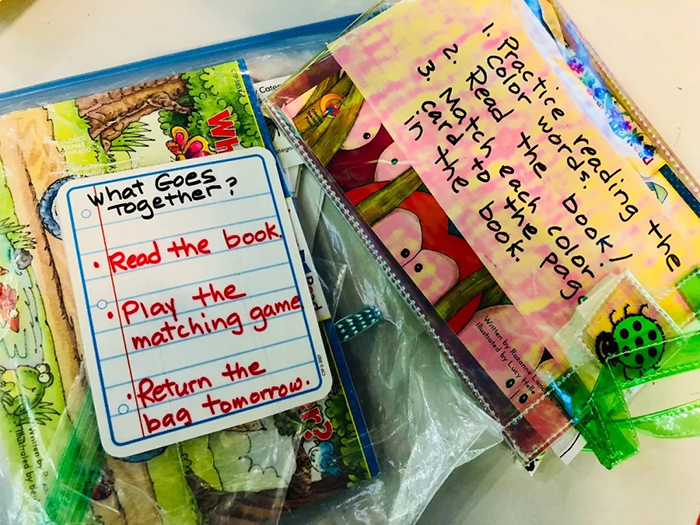 What Goes
Together?
• Read the book.
• Play the
matching game
• Return the
bag tomorrow.
1. Practice reading the
color words.
2. Read the book!
3. Match each color
card to the page
in the book.
Written by Roxanne
Illustrated by Lucy
Wh
Written by